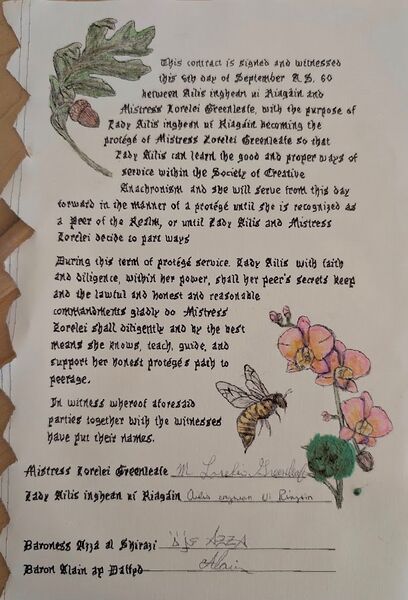 This contract is signed and witnessed
this 5th day of September A.S. 60
between Ailis inghean uí Riagáin and
Mistress Lorelei Greenleafe, with the purpose of
Lady Ailis inghean uí Riagáin becoming the
protégé of Mistress Lorelei Greenleafe so that
Lady Ailis can learn the good and proper ways of
service within the Society of Creative
Anachronism and she will serve from this day
forward in the manner of a protégé until she is recognized as
a Peer of the Realm, or until Lady Ailis and Mistress
Lorelei decide to part ways
During this term of protégé service, Lady Ailis with faith
and diligence, within her power, shall her peer's secrets keep
and the lawful and honest and reasonable
commandments gladly do Mistress
Lorelei shall diligently and by the best
means she knows, teach, guide, and
support her honest protégé's path to
peerage.
In witness whereof aforesaid
parties together with the witnesses
have put their names.
Mistress Lorelei Greenleafe M Lorelei Greenleafe
Lady Ailis inghean uí Riagáin Ailis inghean Ui Riagain
Baroness Azzá al Shirazi AZZA
Baron Alain ap Dafydd Alain